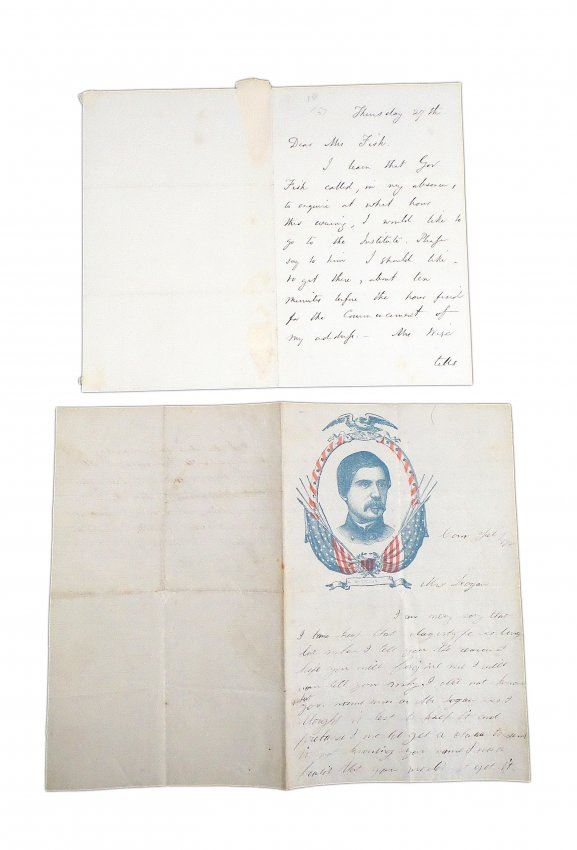 Thursday 27th
Dear Mrs Fish.
I learn that Gov
Fish called, in my absence,
to enquire at what hour
this evening, I would like to
go to the Institute. Please
say to him I should like
to get there, about ten
minutes before the hour fixed
for the Commencement of
my address - Mrs
tells
Mrs Logan
I am very sorry that
I have kept that so long
but when I tell you the reason I
hope you will forgive me I will
tell you I did not know
your name was Mrs Logan and I
thought it best to keep it and
I would get a chance to send
it not knowing your name I was
afraid that you would get it